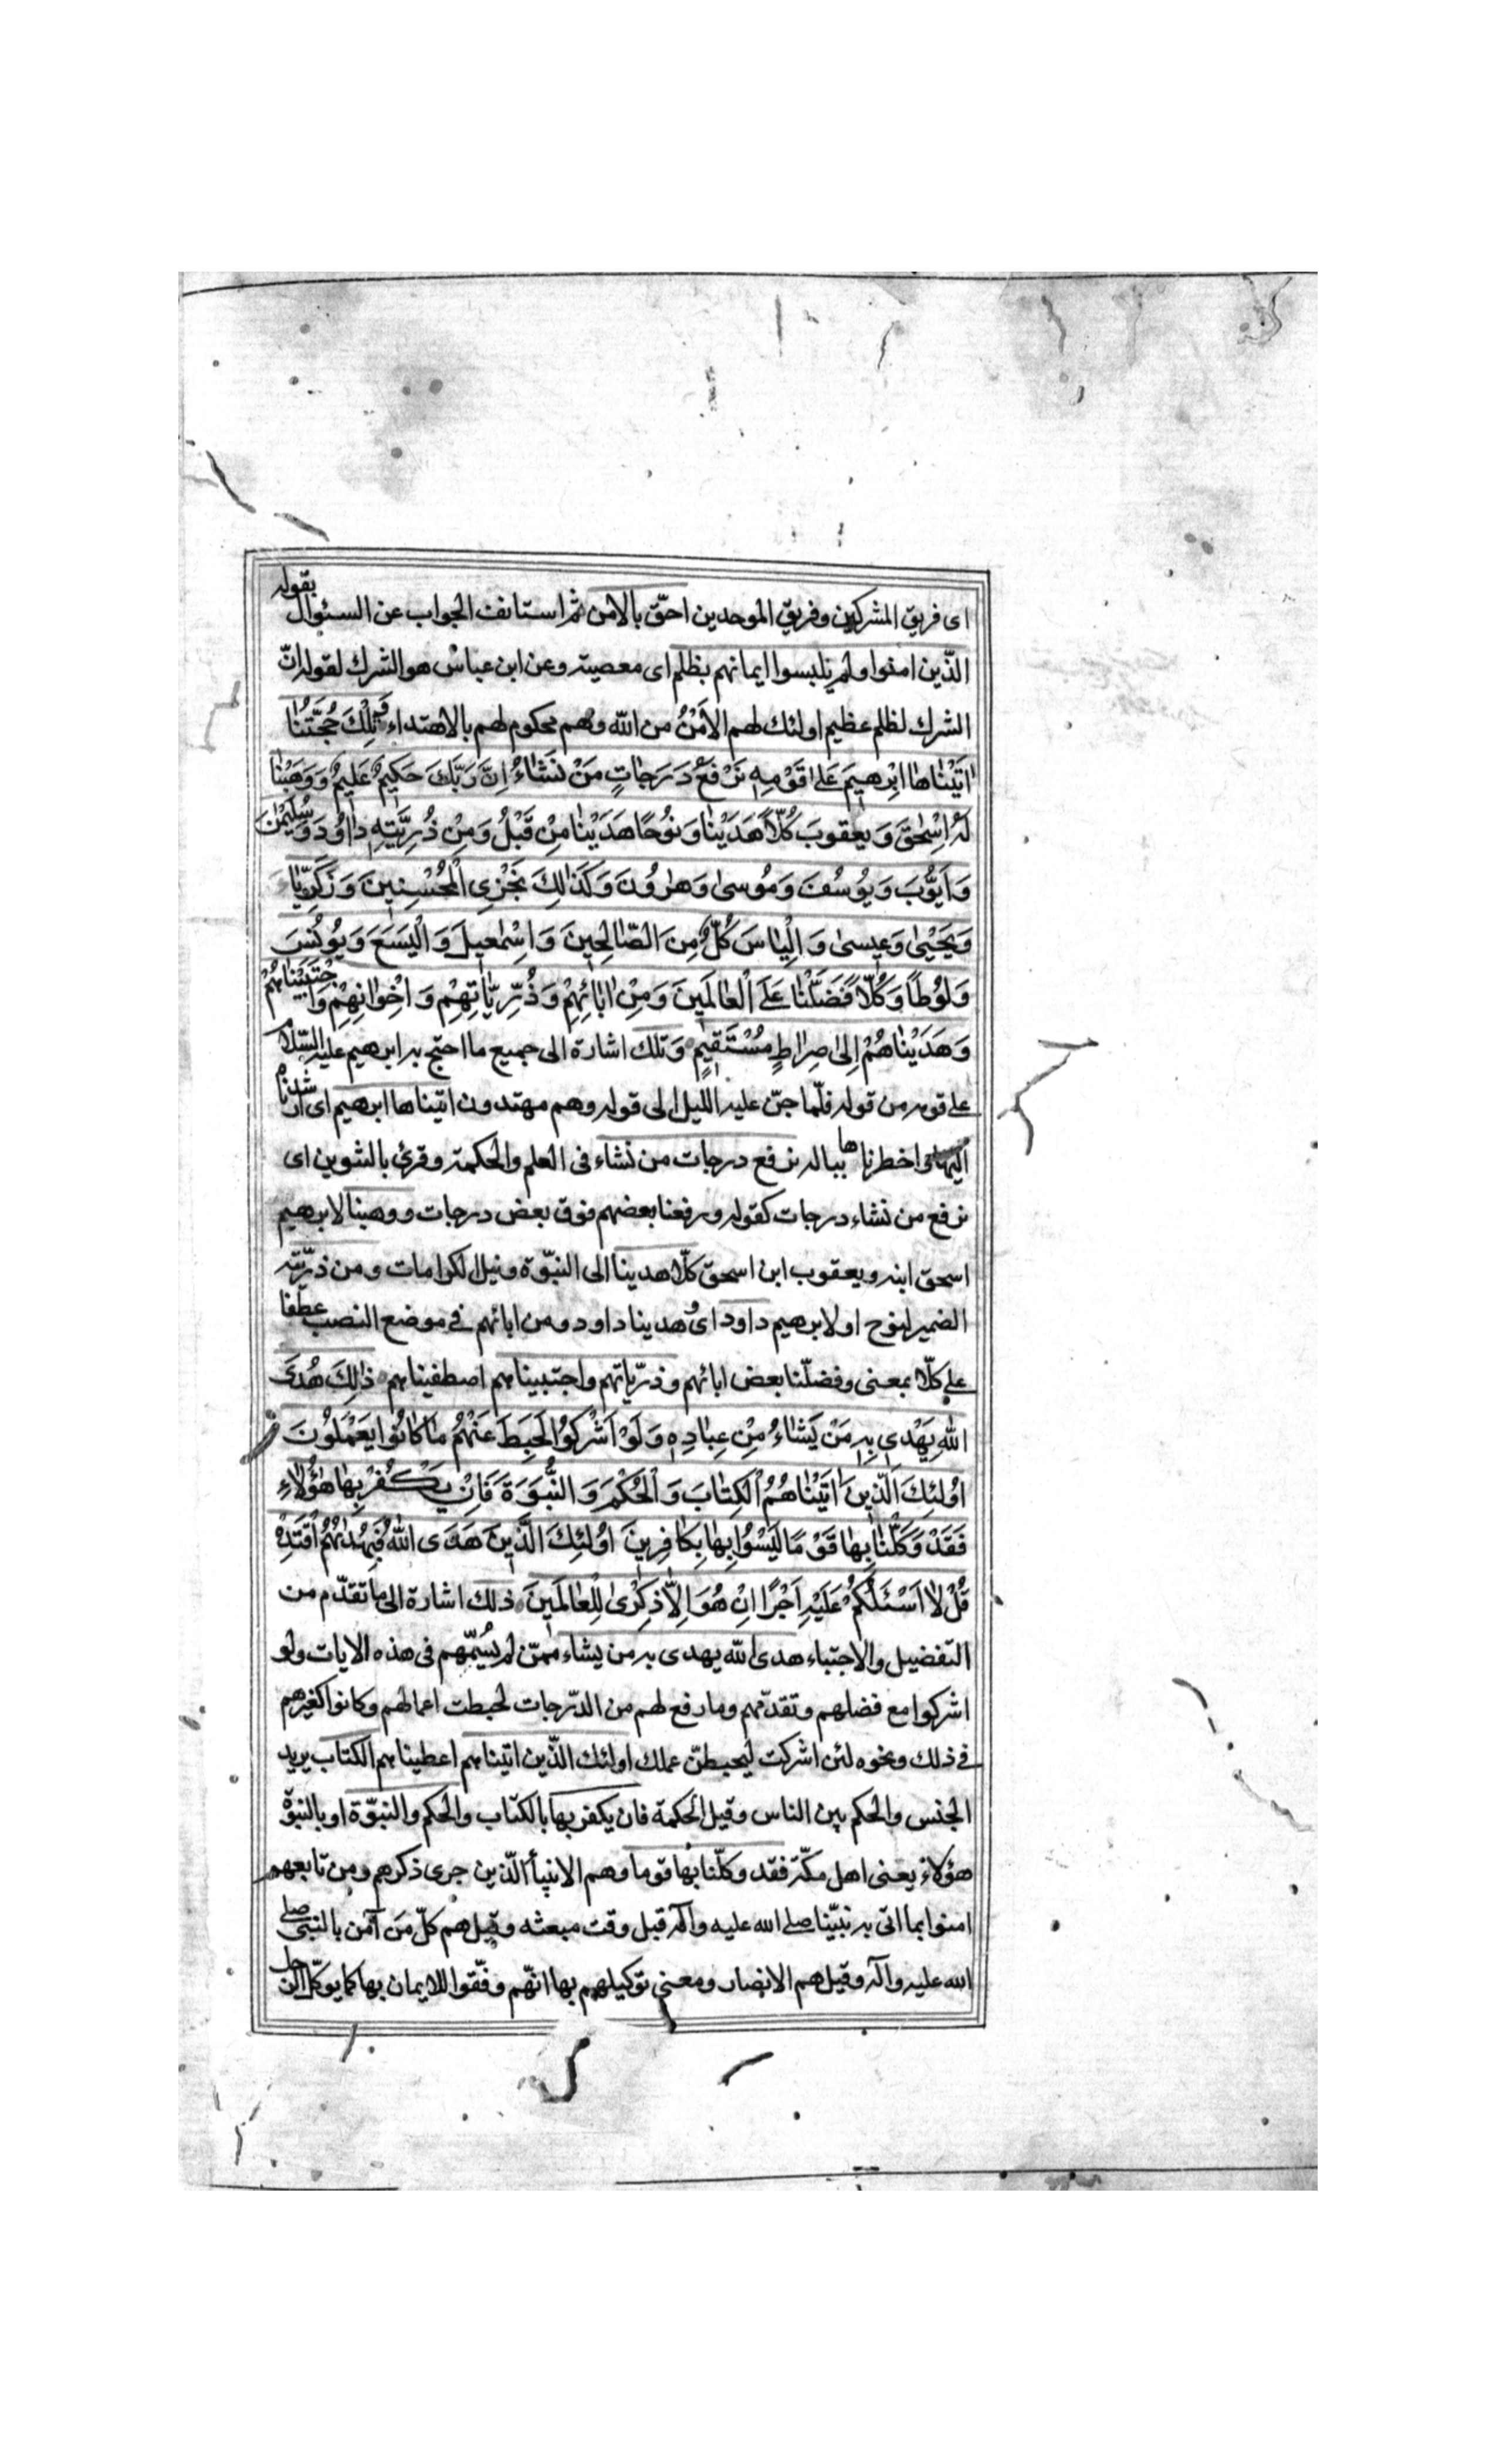 ای فریق المشرکین وفریق الموحدین احقّ بالامن ثم استانف الجواب عن السئوال بقوله
الذّین امنوا ولم یلبسوا ایمانهم بظلم ای معصیته وعن ابن عباس هو الشرك لقوله انّ
الشرك لظلم عظیم اولئك لهم الاَمْنُ من الله وهم محکوم لهم بالاهتداء وَتِلْكَ حُجَّتُنٰا
اٰتَیْنٰاهٰا اِبْرٰهیمَ عَلیٰ قَوْمِهِ نَرْفَعُ دَرَجٰاتٍ مَنْ نَشٰاءُ اِنَّ رَبَّكَ حَکیمٌ عَلیمٌ وَوَهَبْنٰا
لَهُ اِسْحٰقَ وَیَعْقوبَ کُلّاً هَدَیْنٰا وَنوُحًا هَدَیْنٰا مِنْ قَبْلُ وَمِنْ ذُرِّیَّتِهِ دٰاوُدَ وَسُلَیْمٰنَ
وَاَیّوُبَ وَیوُسُفَ وَموُسیٰ وَهٰروُنَ وَکَذٰلِكَ نَجْزِی الْمُحْسِنینَ وَزَکَرِیّٰاءَ
وَیَحْییٰ وَعیسیٰ وَاِلْیٰاسَ کُلٌّ مِنَ الصّٰالِحینَ وَاِسْمٰعیلَ وَالْیَسَعَ وَیوُنُسَ
وَلوُطاً وَکُلّاً فَضَّلْنٰا عَلَی الْعٰالَمینَ وَمِنْ اٰبٰائِهِمْ وَذُرِّیّٰاتِهِمْ وَاِخْوٰانِهِمْ وَاجْتَبَیْنٰاهُمْ
وَهَدَیْنٰاهُمْ اِلیٰ صِرٰاطٍ مُسْتَقیمٍ وتلك اشارة الی جمیع ما احتج به ابرهیم علیه السّلام
علی قومه من قوله فلمّا جنّ علیه اللیل الی قوله وهم مهتدون اتیناها ابرهیم ای ارشدناه
الیها اخطرناها بباله نرفع درجات من نشاء فی العلم والحکمة وقرئ بالتنوین ای
نرفع من نشاء درجات کقوله ورفعنا بعضهم فوق بعض درجات ووهبنا لابرهیم
اسحق ابنه ویعقوب ابن اسحق کلّا هدینا الی النبّوة ونیل الکرامات ومن ذرّیّته
الضمیر لنوح او لابرهیم داود ای وهدینا داود ومن ابائهم فی موضع النصب عطفا
علی کلّا بمعنی وفضلّنا بعض ابائهم وذرّیّاتهم واجتبیناهم اصطفیناهم ذٰلِكَ هُدَی
اللّٰهِ یَهْدی بِهِ مَنْ یَشٰاءُ مِنْ عِبٰادِهِ وَلَوْ اَشْرَکُوا لَحَبِطَ عَنْهُمْ مٰا کٰانوُا یَعْمَلوُنَ
اوُلئِكَ الَّذینَ اٰتَیْنٰاهُمُ الْکِتٰابَ وَالْحُکْمَ وَالنُّبُوَّةَ فَاِنْ یَکْفُرْ بِهٰا هٰؤُلٰاءِ
فَقَدْ وَکَّلْنٰا بِهٰا قَوْمًا لَیْسوُا بِهٰا بِکٰافِرینَ اوُلئِكَ الَّذینَ هَدَی اللّٰهُ فَبِهُدٰیٰهُمُ اقْتَدِهْ
قُلْ لٰا اَسْئَلُکُمْ عَلَیْهِ اَجْرًا اِنْ هُوَ اِلّٰا ذِکْریٰ لِلْعٰالَمینَ ذلك اشارة الی ما تقدّم من
التفضیل والاجتباء هدی الله یهدی به من یشاء ممّن لم یُسمّهم فی هذه الایات ولو
اشرکوا مع فضلهم وتقدّمهم وما رفع لهم من الدّرجات لحبطت اعمالهم وکانوا کغیرهم
فی ذلك ونحوه لئن اشرکت لیحبطنّ عملك اولئك الذّین اتیناهم اعطیناهم الکتاب یرید
الجنس والحکم بین الناس وقیل الحکمة فان یکفر بها بالکتاب والحکم والنبّوة او بالنبوّة
هؤلاء یعنی اهل مکّة فقد وکلّنا بها قوما وهم الانبیآ الذّین جری ذکرهم ومن تابعهم
امنوا بما اتی به نبیّنا صلی الله علیه واله قبل وقت مبعثه وقیل هم کلّ مَن آمن بالنبی صلی
الله علیه واله وقیل هم الانصار ومعنی توکیلهم بها انّهم وفّقوا للایمان بها کما یوکّل الرجل